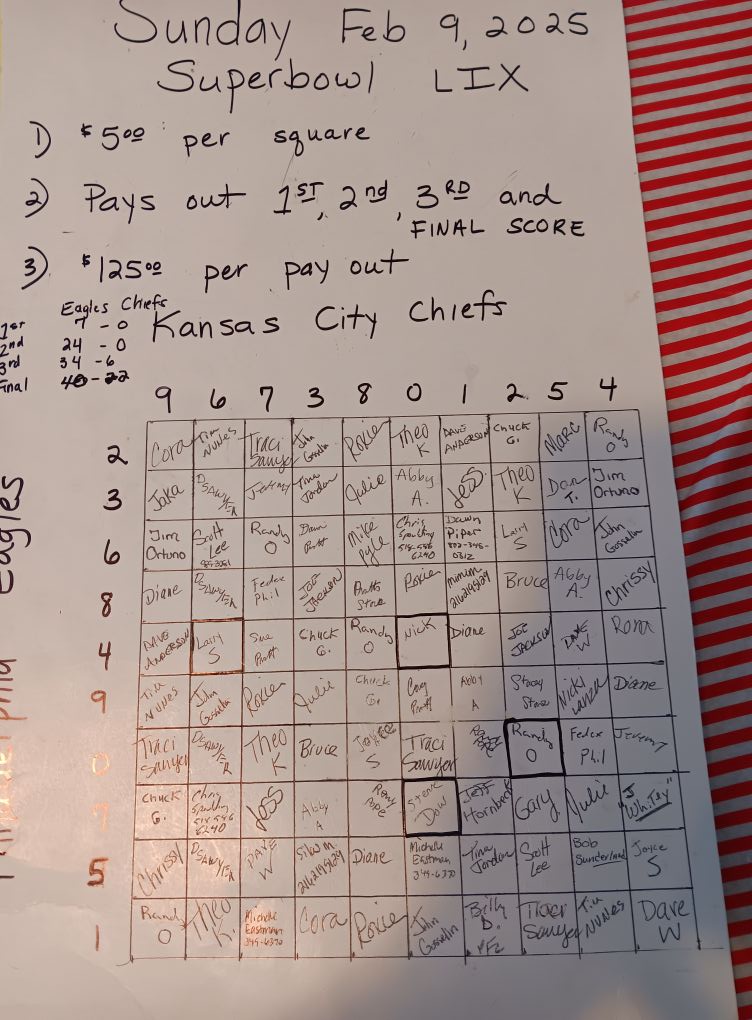 Sunday Feb 9, 2025
Superbowl LIX
1) $5.00 per square
2) Pays out 1ST, 2nd, 3RD and
FINAL SCORE
3) $125.00 per pay out
Eagles Chiefs
1st 7 - 0
2nd 24 - 0
3rd 34 - 6
Final 40 - 22
Kansas City Chiefs
Eagles
9 6 7 3 8 0 1 2 5 4
2 Cora Tim NUNES Traci Sawyer John Gosselin Roxie Theo K DAVE ANDERSON CHUCK G. Marc Randy O
3 Jaka DSAWYER Jeffrey Tina Jordan Julie Abby A. Jess Theo K Dan T. Jim Ortuno
6 Jim Ortuno Scott Lee Randy O Dawn Pratt Mike Pyle Chris Spaulding 518-586 6240 Dawn Piper 802-345-0312 Larry S Cora John Gosselin
8 Diane DSAWYER Fedex Phil JOE JACKSON Pratts Store Roxie Bruce Abby A. Chrissy
4 DAVE ANDERSON Larry S Sue Pratt Chuck G. Randy O Nick Diane JOE JACKSON DAVE W Rona
9 Tim NUNES John Gosselin Roxie Julie Chuck G. Cory Pratt Abby A Stacey Stone Nicki Diane
0 Traci Sawyer DSAWYER Theo K Bruce S Traci Sawyer Randy O Fedex Phil Jeremy
7 Chuck G. Chris Spaulding 518-586 6240 Jess Abby A Steve Dow Jeff Hornbeck Gary Julie "J Whitey"
5 Chrissy DSAWYER DAVE W Diane Michele Eastman 349-6370 Tina Jordan Scott Lee Bob Sunderland Joyce S
1 Randy O Theo K. Michele Eastman 349-6370 Cora Roxie John Gosselin Billy D. Traci Sawyer Tim NUNES Dave W